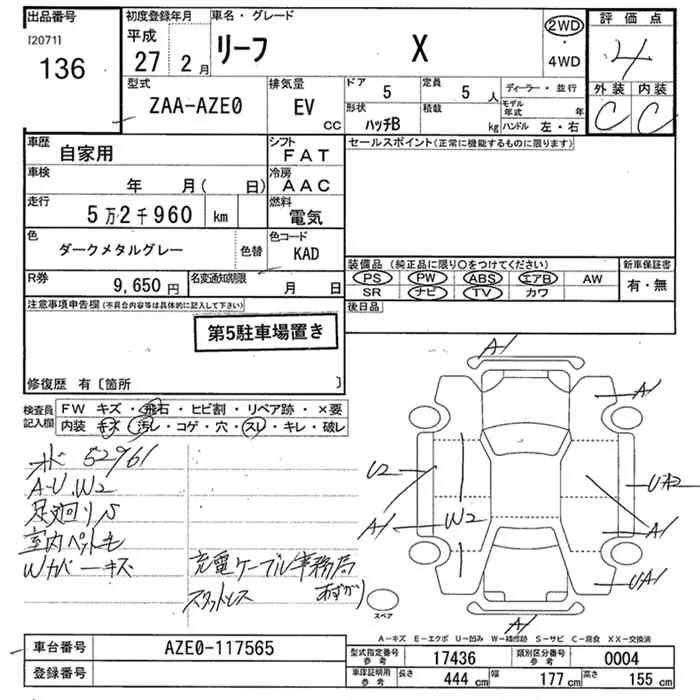 出品番号
[2071]
136
初度登録年月
平成
27 2 月
車名・グレード
リーフ X
2WD
・
4WD
評価点
4
外装 内装
C C
型式
ZAA-AZE0
排気量
EV
CC
ドア
5
定員
5 人
形状
ハッチB
積載
kg
ディーラー・並行
モデル年式 年
ハンドル 左・右
車歴
自家用
シフト
FAT
車検
年 月( 日)
冷房
AAC
走行
5万2千960 km
燃料
電気
色
ダークメタルグレー
色替
色コード
KAD
R券
9,650 円
名変通知期限
月 日
セールスポイント(正常に機能するものに限ります)
装備品 (純正品に限り○をつけてください)
新車保証書
PS PW ABS エアB AW
有・無
SR ナビ TV カワ
後日品
注意事項申告欄(不具合内容等は具体的に記入して下さい)
第5駐車場置き
修復歴 有〔箇所 〕
検査員記入欄
FW キズ・飛石・ヒビ割・リペア跡・×要
内装 キズ・汚レ・コゲ・穴・スレ・キレ・破レ
52961
A-U.W2
足廻りS
室内ペット毛
Wカバーキズ
充電ケーブル事務局
スタットレス あずかり
A1
A1
U2
A1
W2
UA2
A1
UA1
A1
スペア
A-キズ E-エクボ U-凹み W-補修跡 S-サビ C-腐食 XX-交換済
車台番号
AZE0-117565
登録番号
型式指定番号
参考
17436
類別区分番号
参考
0004
車庫証明用
参考
長さ
444 cm
幅
177 cm
高さ
155 cm